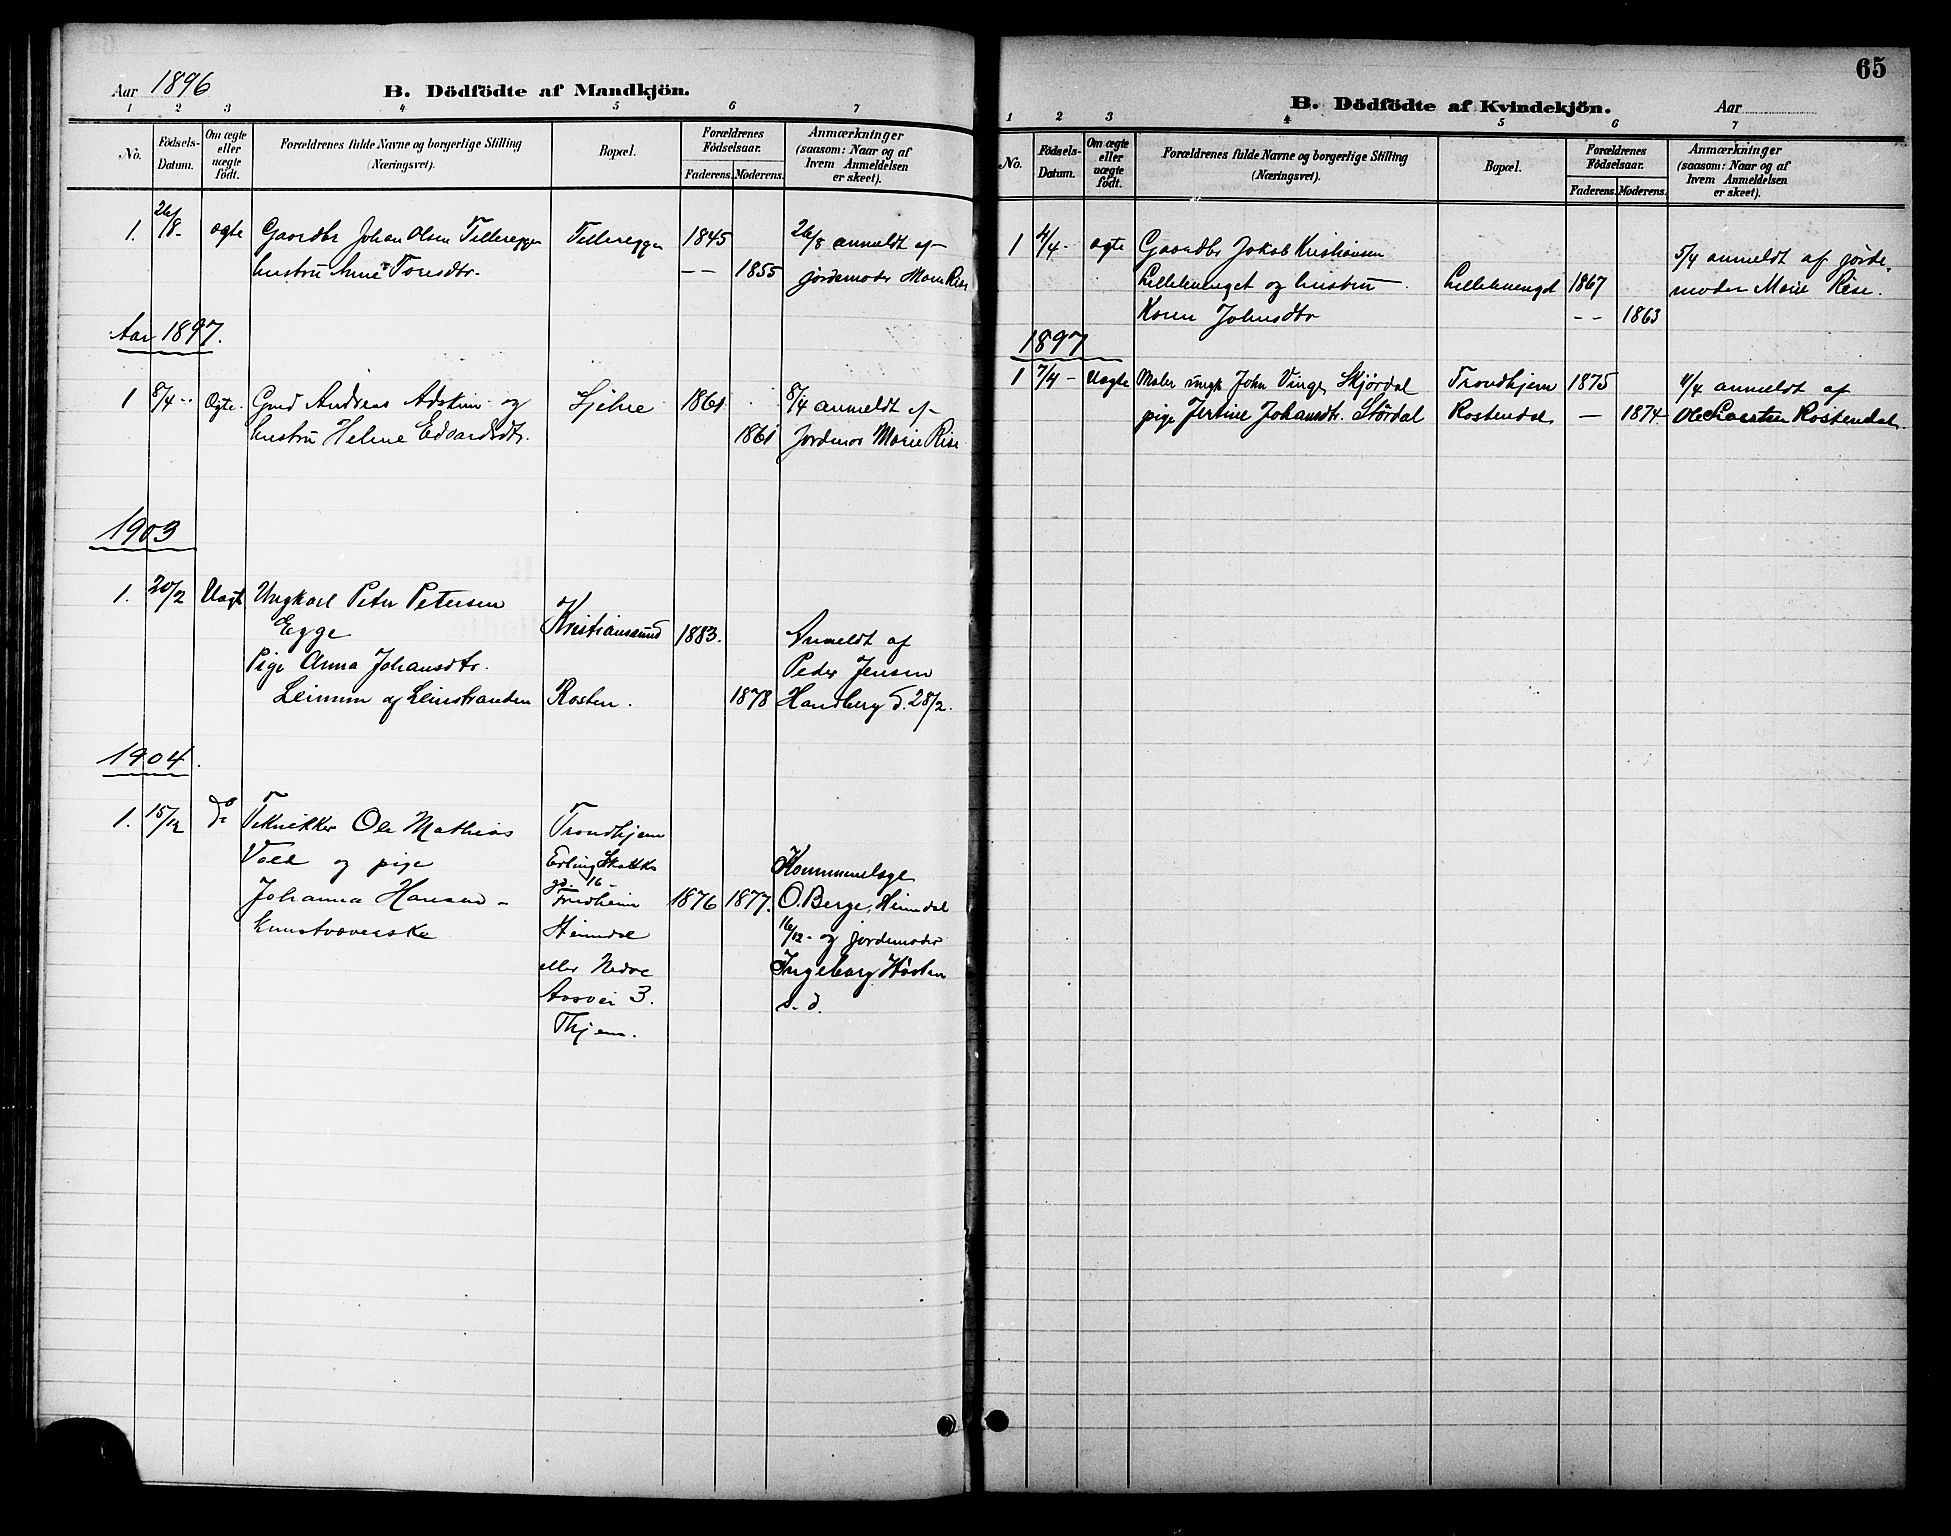 Aar 1896
B. Dödfödte af Mandkjön.
1 2 3 4 5 6 7
No.
Födsels-Datum.
Om ægte eller uægte födt.
Forældrenes fulde Navne og borgerlige Stilling (Næringsvei).
Bopæl.
Forældrenes Födselsaar.
Faderens. Moderens.
Anmærkninger (saasom: Naar og af hvem Anmeldelsen er skeet).
1. 26/8- ægte Gaardbr Johan Olsen Tillereggen Tillereggen 1845 26/8 anmeldt af
hustru Toresdtr. -- 1855 jordemoder Marie Rise
Aar 1897.
1 8/4- Ægte Gmd Andreas og 1861 8/4 anmeldt af
hustru Helene Edvardsdtr. 1861 Jordemor Marie Rise
1903
1. 20/2 Uægt Ungkarl Peter Petersen
Egge Kristiansund 1883. Anmeldt af
Pige Anna Johansdtr. Peder Jensen
Leinum af Leinstranden Rosten. 1878 Handberg d. 28/2.
1904.
1. 15/12 do Tekniker Ole Mathias Trondhjem
Vold og pige Erling Skakkes Kommunelæge
gd. 16-
Johanna Hansen - Fredheim 1876 1877. O. Berge, Heimdal
kunstvæverske Heimdal 16/12- og jordemoder
eller Nedre Ingeborg Hösten
3. s. d.
Thjem.
65
B. Dödfödte af Kvindekjön.
Aar
1 2 3 4 5 6 7
No.
Födsels-Datum.
Om ægte eller uægte födt.
Forældrenes fulde Navne og borgerlige Stilling (Næringsvei).
Bopæl.
Forældrenes Födselsaar.
Faderens. Moderens.
Anmærkninger (saasom: Naar og af hvem Anmeldelsen er skeet).
1 4/4- ægte Gaardbr Jakob Kristiansen 5/4 anmeldt af jorde-
og hustru 1867 moder Marie Rise.
Karen Johnsdtr -- 1863
1897
1 7/4- Uægte Maler ungk John Vinge Skjördal Trondhjem 1875 anmeldt af
pige Johansdtr. Stördal Rostendal — 1874. Ole Rostendal.